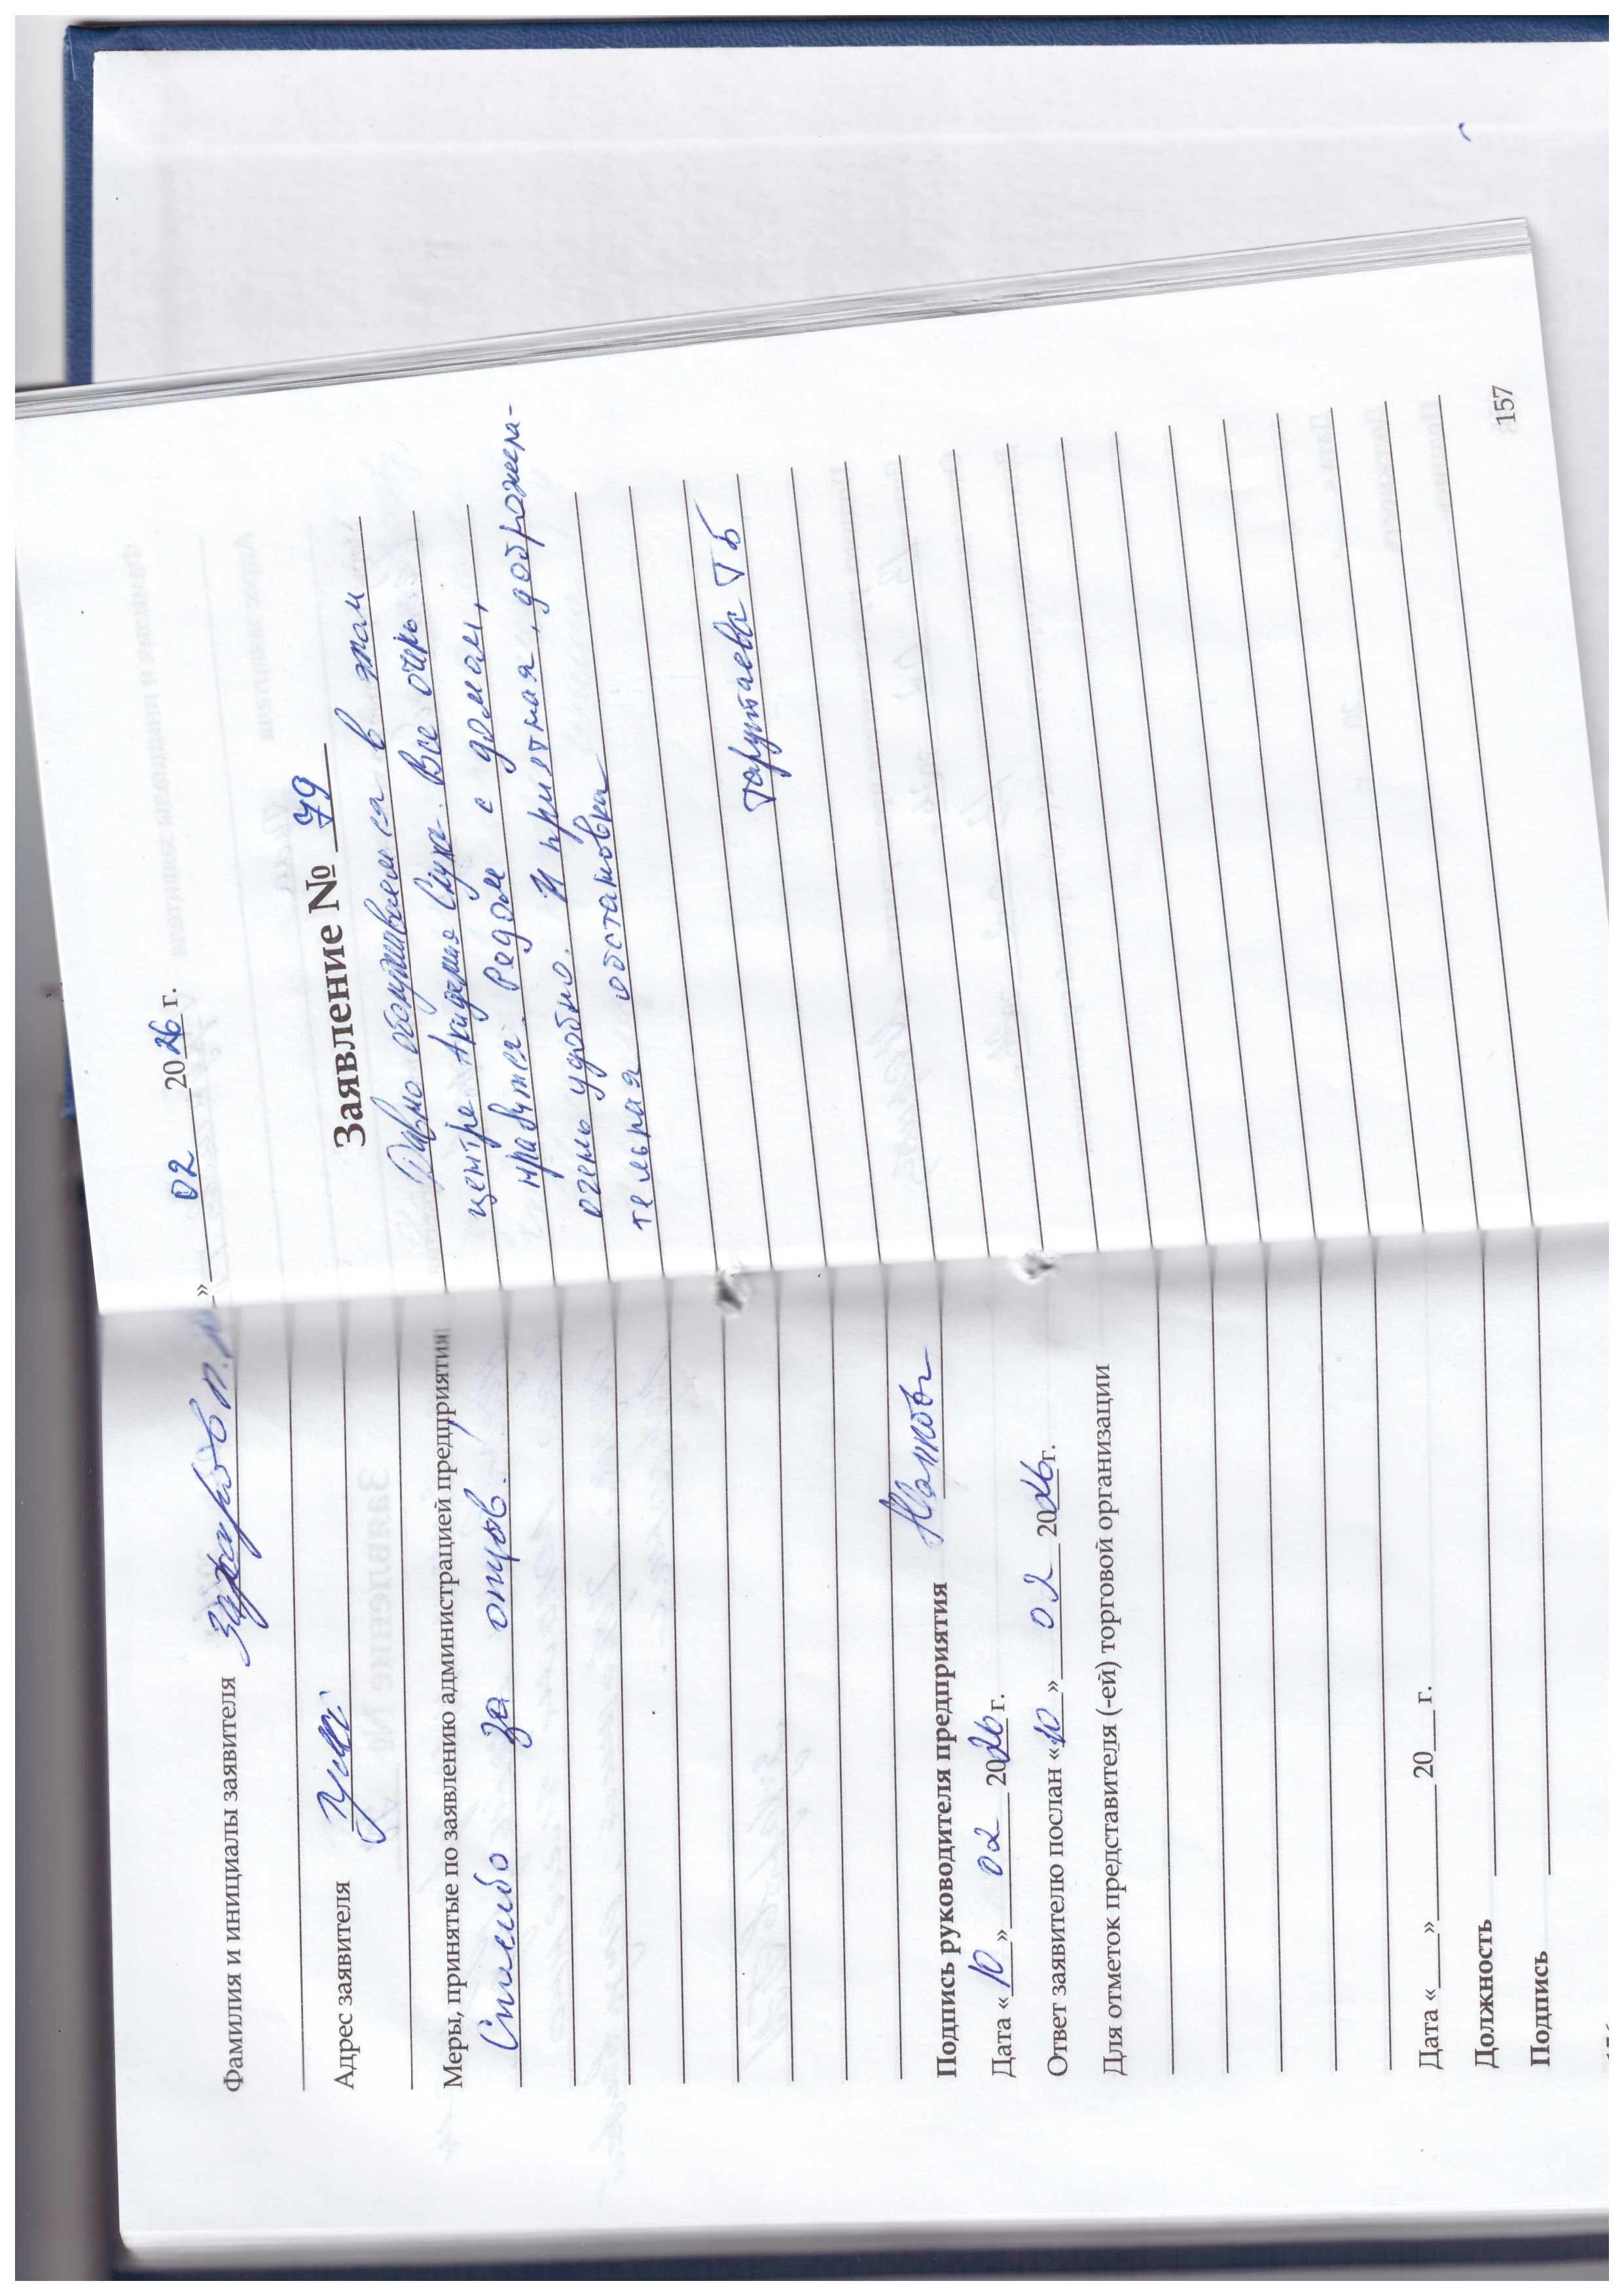 Фамилия и инициалы заявителя Захаров П.М
Адрес заявителя
Меры, принятые по заявлению администрацией предприятия
Спасибо за отзыв.
Подпись руководителя предприятия
Дата «10» 02 2026 г.
Ответ заявителю послан «10» 02 2026 г.
Для отметок представителя (-ей) торговой организации
Дата «___» ______ 20___ г.
Должность
Подпись
» 02 2026 г.
Заявление № 79
Давно обслуживаемся в этом
центре Академия Слуха. Все очень
нравится. Рядом с домом,
очень удобно. И приятная, доброжела-
тельная обстановка
Тарутаева ТБ
157